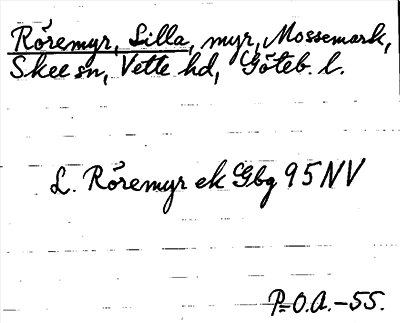 Röremyr, Lilla, myr, Mossemark,
Skee sn, Vette hd, Göteb. l.
L. Röremyr ek Gbg 95 NV
P.O.A. -55.